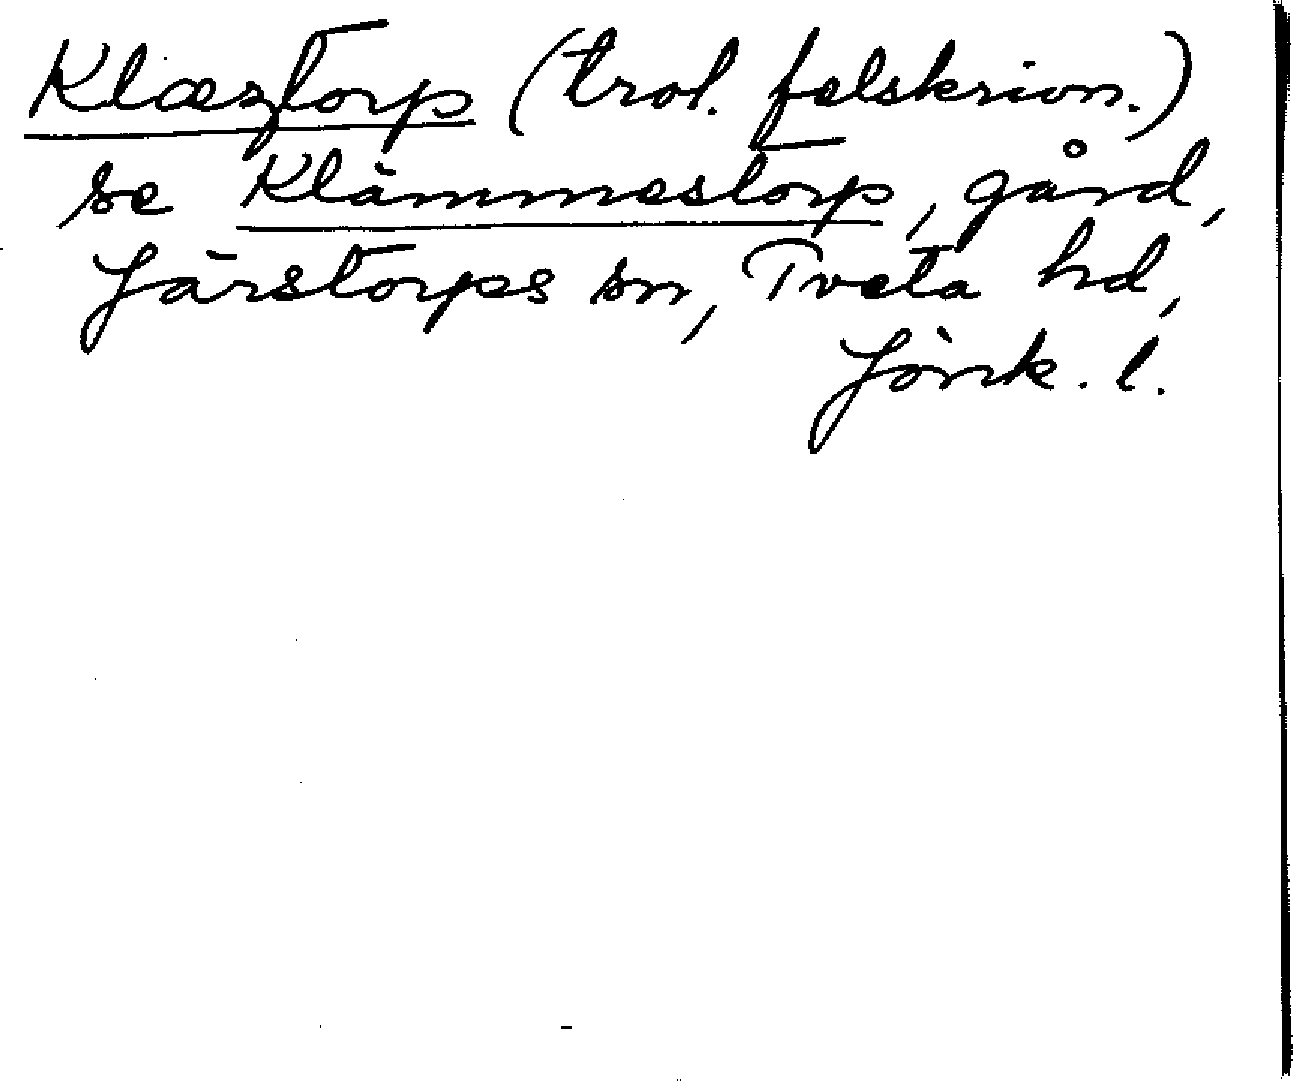 Klæztorp (trol. felskrivn.)
se Klämmestorp, gård,
Järstorps sn, Tveta hd,
Jönk. l.